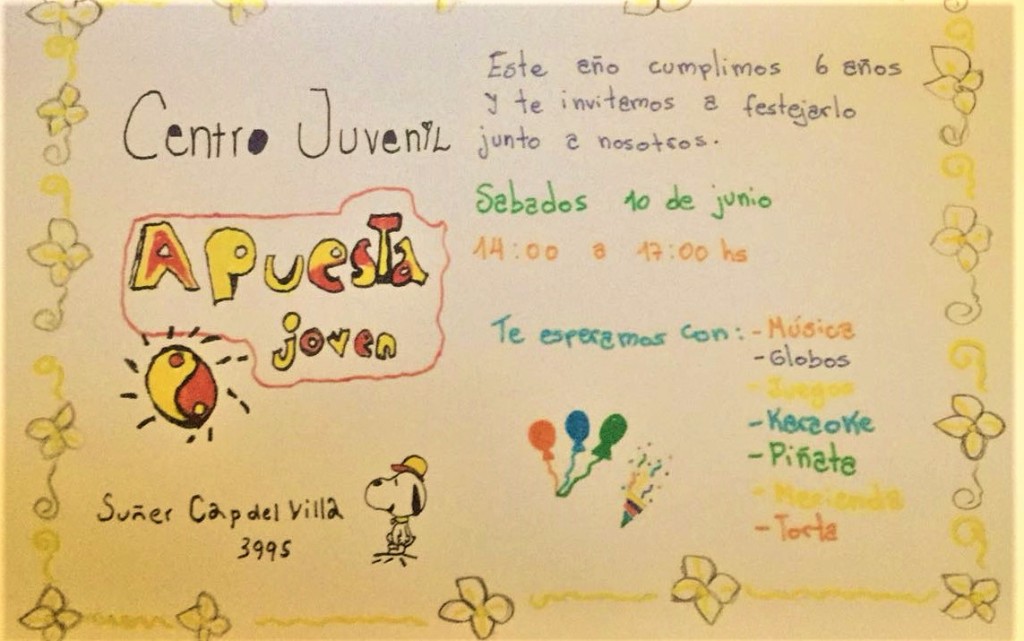 Centro Juvenil
Apuesta
joven
Suñer Capdel Villa
3995
Este año cumplimos 6 años
y te invitamos a festejarlo
junto a nosotros.
Sabados 10 de junio
14:00 a 17:00 hs
Te esperamos con: - Música
- Globos
- Juegos
- Karaoke
- Piñata
- Merienda
- Torta